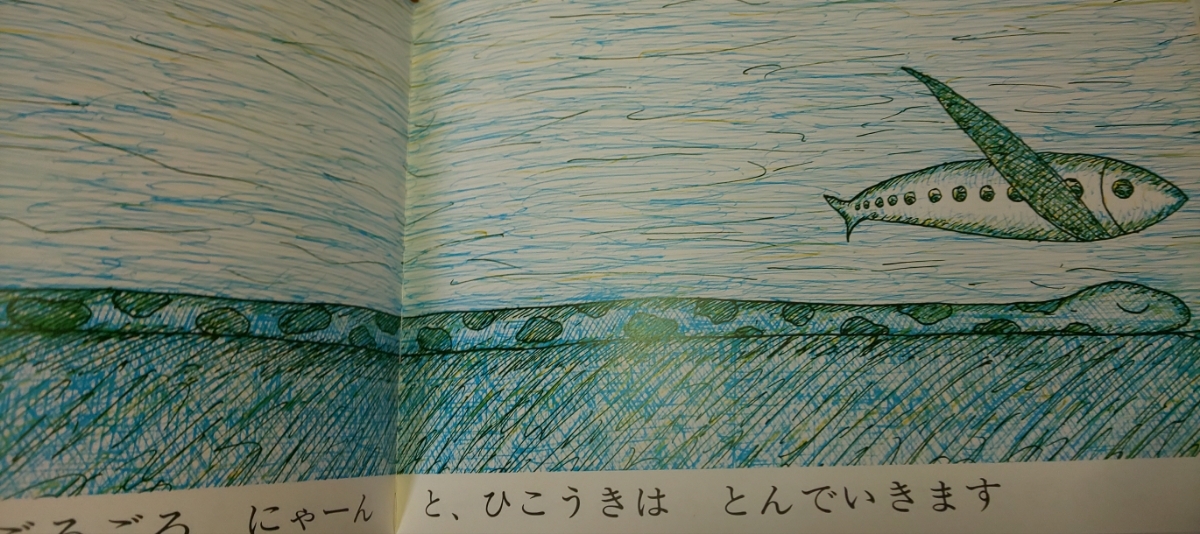 ごろごろ　にゃーん　と、ひこうきは　とんでいきます